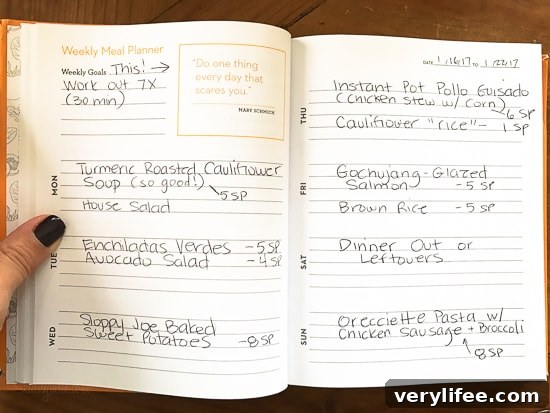 Weekly Meal Planner
Weekly Goals This! →
Work out 7X
(30 min)
"Do one thing
every day that
scares you."
MARY SCHMICH
MON
Turmeric Roasted Cauliflower
Soup (so good!)
5 SP
House Salad
TUE
Enchiladas Verdes - 5 SP
Avocado Salad - 4 SP
WED
Sloppy Joe Baked
Sweet Potatoes - 8 SP
DATE 1/16/17 TO 1/22/17
THU
Instant Pot Pollo Guisado
(Chicken Stew w/ Corn)
6 SP
Cauliflower "rice" - 1 SP
FRI
Gochujang-Glazed
Salmon - 5 SP
Brown Rice - 5 SP
SAT
Dinner Out or
Leftovers
SUN
Orecciette Pasta w/
Chicken Sausage + Broccoli
8 SP
verylifee.com